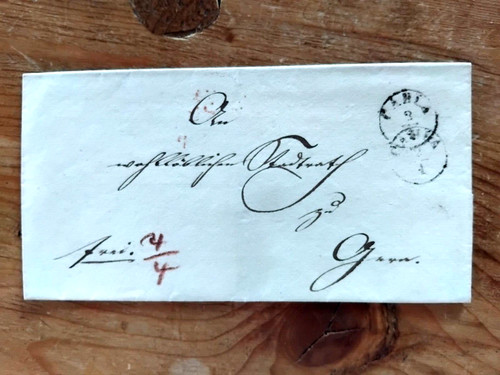 An
wohllöblichen Stadtrath
zu
frei. 4/4
Gera.
KAHLA